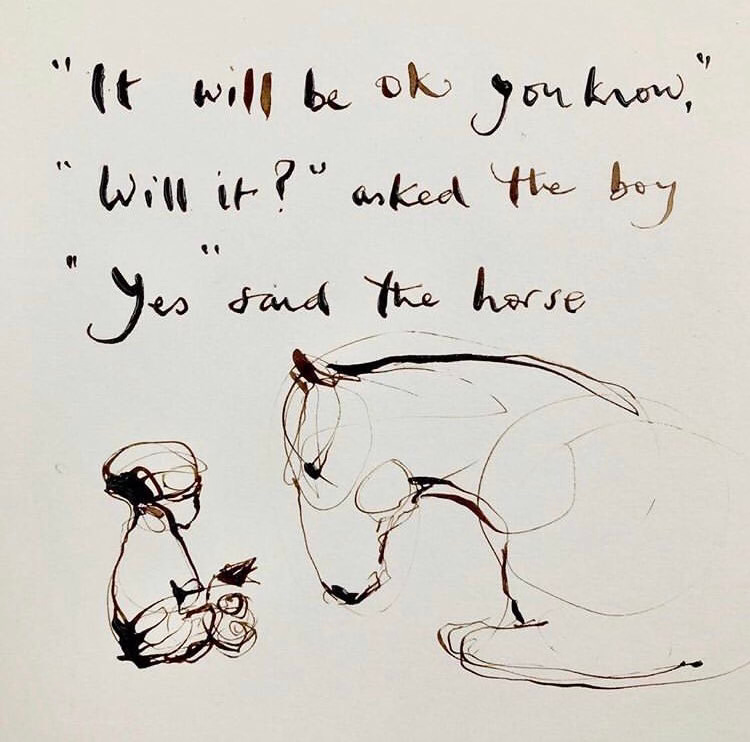 "It will be ok you know,"
"Will it?" asked the boy
"Yes" said the horse